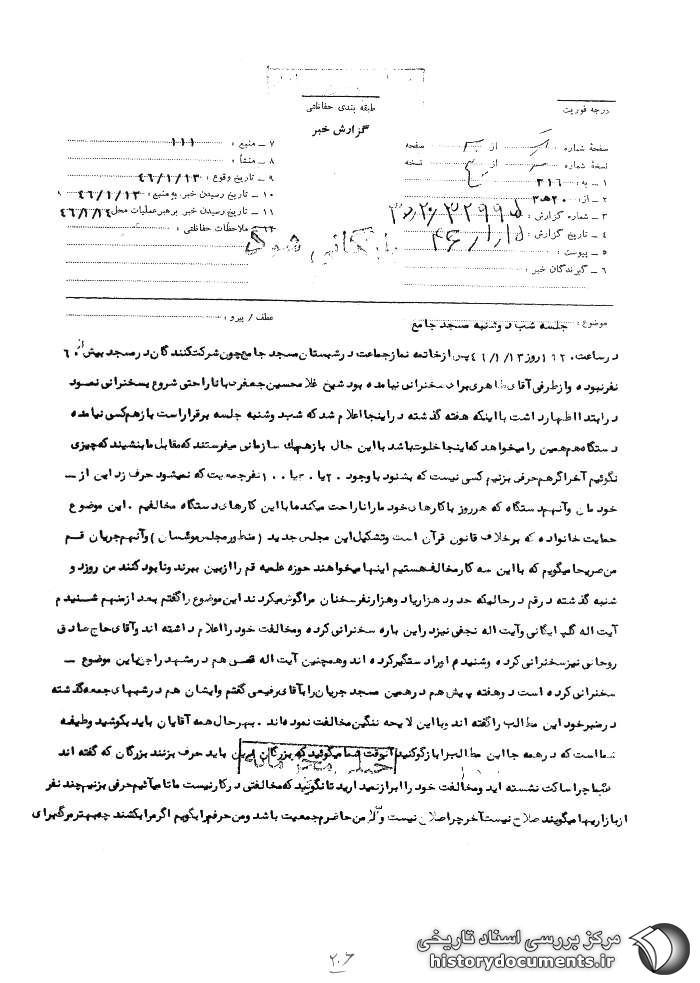 درجه فوریت
طبقه بندی حفاظتی
گزارش خبر
صفحهٔ شماره از صفحه
نسخهٔ شماره از نسخه
۱ ـ به : ۳۱۶
۲ ـ از : ۲۰ه۳
۳ ـ شماره گزارش :
۴ ـ تاریخ گزارش :
۵ ـ پیوست :
۶ ـ گیرندگان خبر :
۷ ـ منبع : ۱۱۱
۸ ـ منشأ :
۹ ـ تاریخ وقوع : ۴۶/۱/۱۳
۱۰ ـ تاریخ رسیدن خبر به منبع : ۴۶/۱/۱۳
۱۱ ـ تاریخ رسیدن خبر برهبر عملیات محل ۴۶/۱/۱۴
۱۲ ـ ملاحظات حفاظتی :
بایگانی شود
موضوع : جلسه شب دوشنبه مسجد جامع
عطف / پیرو :
درساعت روز ۴۶/۱/۱۳ پس ازخاتمه نماز جماعت درشبستان مسجد جامع چون شرکت کنندگان درمسجد بیش از ۶۰
نفرنبوده وازطرفی آقای طاهری برای سخنرانی نیامده بود شیخ غلامحسین جعفری با ناراحتی شروع بسخنرانی نمود
درابتدا اظهارداشت با اینکه هفته گذشته دراینجا اعلام شد که شب دوشنبه جلسه برقرار است بازهم کسی نیامده
دستگاه هم همین را میخواهد که اینجا خلوت باشد با این حال بازهم یک سازمانی میفرستند که مقابل ما بنشیند که چیزی
نگوئیم آخر اگرهم حرفی بزنیم کسی نیست که بشنود باوجود ۲۰ یا ۳۰ یا ۱۰۰ نفر جمعیت که نمیشود حرف زد این از ـ
خودمان وآنهم دستگاه که هرروز باکارهای خود ما را ناراحت میکند ما با این کارهای دستگاه مخالفیم . این موضوع
حمایت خانواده که برخلاف قانون قرآن است وتشکیل این مجلس جدید ( منظور مجلس موسسان ) وآنهم جریان قم
من صریحا میگویم که با این سه کار مخالف هستیم اینها میخواهند حوزه علمیه قم را ازبین ببرند ونابود کنند من روز دو
شنبه گذشته درقم درحالیکه حدود هزار یا دوهزار نفر سخنان مرا گوش میکردند این موضوع را گفتم بعد از منهم شنیدم
آیت اله گلپایگانی وآیت اله نجفی نیز دراین باره سخنرانی کرده ومخالفت خود را اعلام داشته اند وآقای حاج صادق
روحانی نیز سخنرانی کرده وشنیدم اورا دستگیر کرده اند وهمچنین آیت اله قمی هم درمشهد راجع باین موضوع ـ
سخنرانی کرده است وهفته پیش هم درهمین مسجد جریان را بآقای رفیعی گفتم وایشان هم درشبهای جمعه گذشته
درمنبر خود این مطالب را گفته اند وبا این لایحه ننگین مخالفت نموده اند . بهرحال همه آقایان باید بکوشید وظیفه
شما است که درهمه جا این مطالب را بازگو کنید آنوقت شما میگوئید که بزرگان دین باید حرف بزنند بزرگان که گفته اند
شما چرا ساکت نشسته اید ومخالفت خود را ابراز نمیدارید تا نگویند که مخالفتی درکار نیست ما تا میآئیم حرفی بزنیم چند نفر
ازبازاریها میگویند صلاح نیست آخر چرا صلاح نیست والله من حاضرم جمعیت باشد ومن حرفم را بگویم اگر مرا بکشند چه بهتر مرگ برای
۲۰۶
مرکز بررسی اسناد تاریخی
historydocuments.ir